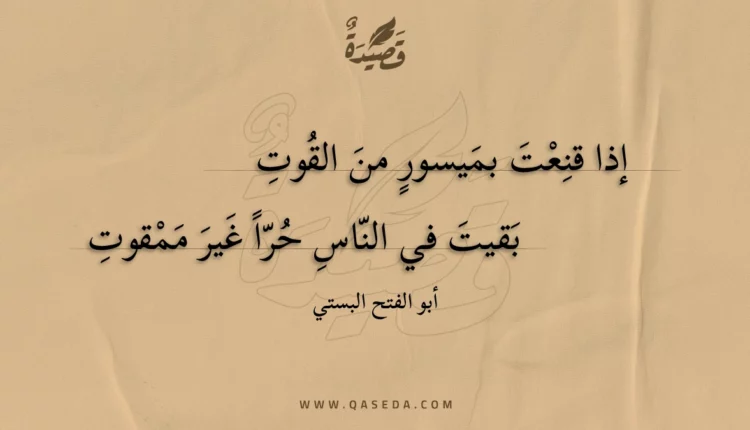 قَصِيْدَةٌ
إذا قنِعْتَ بمَيسورٍ منَ القُوتِ
بَقيتَ في النّاسِ حُرّاً غَيرَ مَمْقوتِ
أبو الفتح البستي
WWW.QASEDA.COM